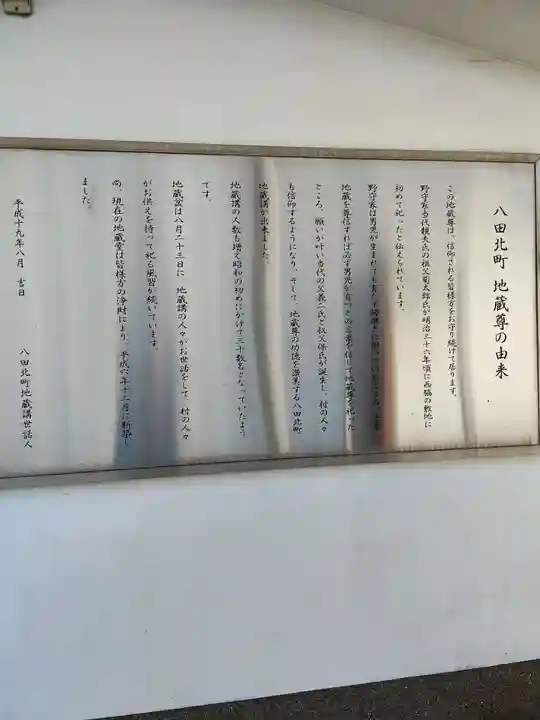 八田北町 地蔵尊の由来
この地蔵尊は、信仰される皆様方をお守り続けて居ります。
野守家当代親夫氏の祖父菊太郎氏が明治三十六年頃に西脇の敷地に
初めて祀ったと伝えられています。
野守家は男児が生まれても育たず
地蔵を尊信すれば必ず男児が育つとの言葉を信じて地蔵尊を祀った
ところ、願いが叶い当代の父義二氏と叔父保氏が誕生し、村の人々
も信仰するようになり、そして、地蔵尊の功徳を讃美する八田北町
地蔵講が出来ました。
地蔵講の人数も増え昭和の初めにかけて三十数名となっていたよう
です。
地蔵盆は八月二十三日に 地蔵講の人々がお世話をして、村の人々
がお供えを持って祀る風習が続いています。
尚、現在の地蔵堂は皆様方の浄財により、平成六年十二月に新築し
ました。
平成十九年八月 吉日
八田北町地蔵講世話人